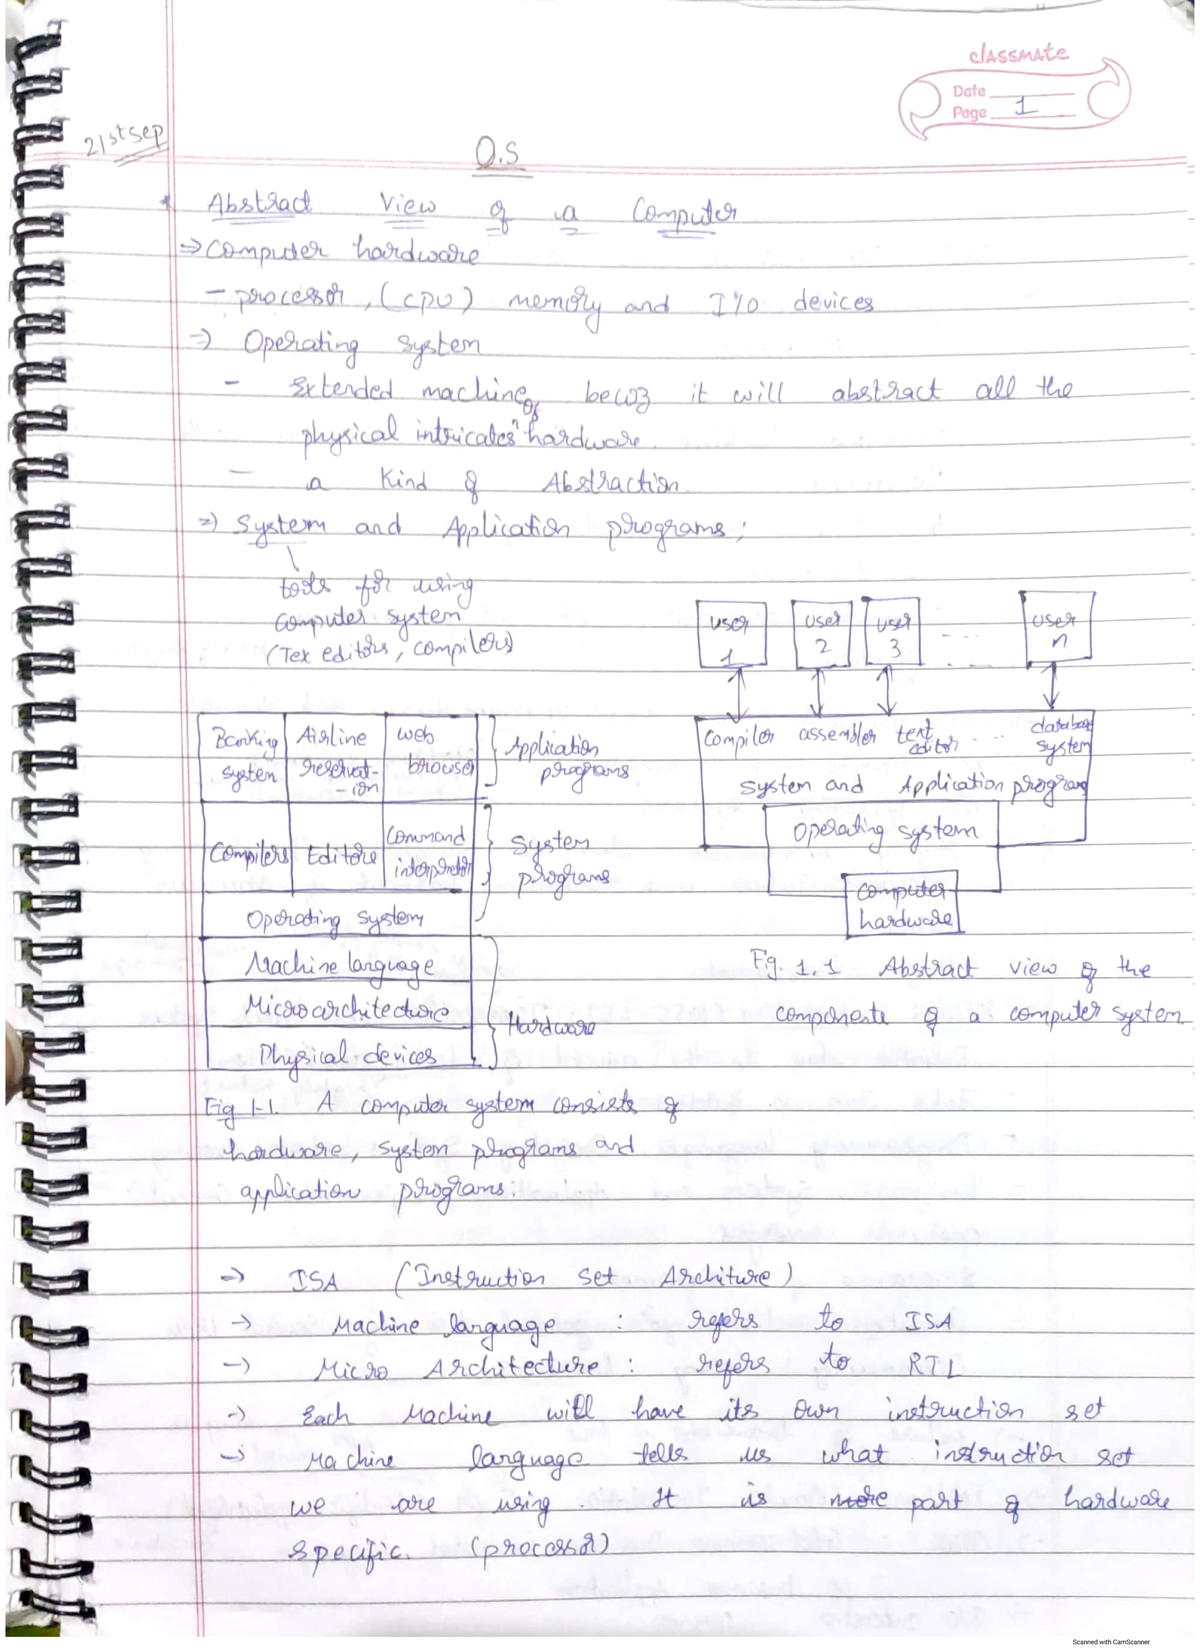 classmate
Date
Page 1
21st sep
O.S
* Abstract View of a Computer
⇒ Computer hardware
- processor, (CPU) memory and I/O devices
⇒ Operating system
- Extended machine becoz it will abstract all the
physical intricates of hardware.
- a Kind of Abstraction.
⇒ System and Application programs;
tools for using
computer system
(Tex editors, compilers)
user 1
user 2
user 3
user n
compiler assembler text editor ... database system
system and Application program
Operating system
computer hardware
Fig. 1.1 Abstract view of the
components of a computer system
Banking system
Airline reservat-ion
web browser
Application programs
Compilers
Editors
Command interpretor
System programs
Operating system
Machine language
Microarchitecture
Physical devices
Hardware
Fig 1-1. A computer system consists of
hardware, system programs and
application programs.
⇒ ISA (Instruction set Architure)
→ Machine language : refers to ISA
→ Micro Architecture : refers to RTL
→ Each Machine will have its own instruction set
→ Machine language tells us what instruction set
we are using. It is more part of hardware
specific. (processor)
Scanned with CamScanner